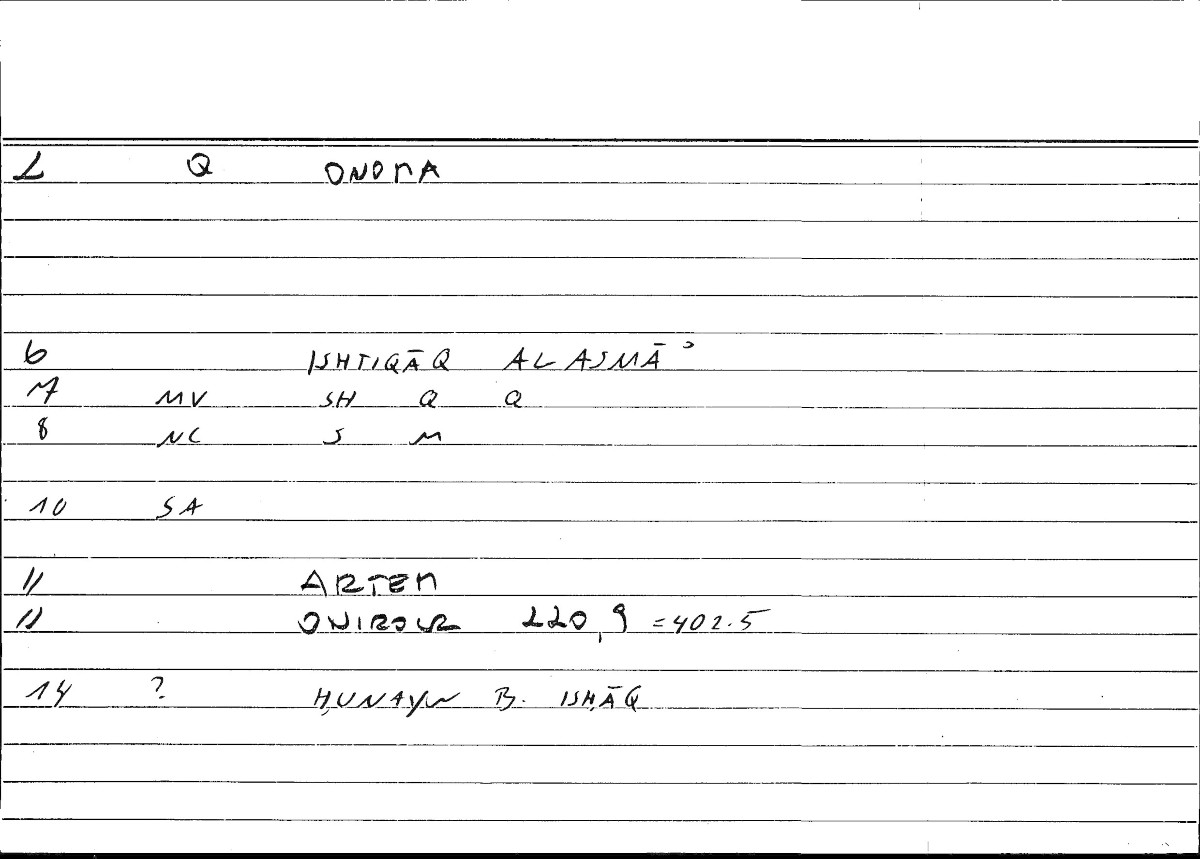 2 Q ONOMA
6 ISHTIQĀQ AL ASMĀʾ
7 MV SH Q Q
8 NC S M
10 SA
11 ARTEM
11 ONIROCR 220,9 =402.5
14 ? ḤUNAYN B. ISḤĀQ